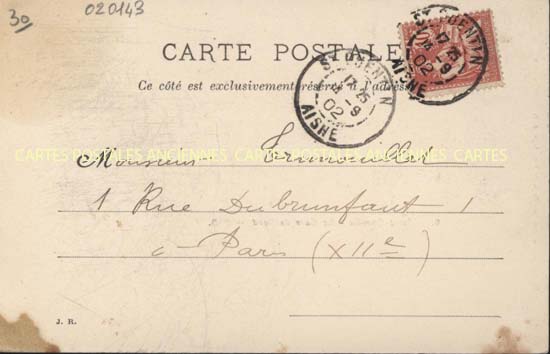 30
020143
CARTE POSTALE
Ce côté est exclusivement réservé à l'adresse
ST QUENTIN
17 25
-9
02
AISNE
ST QUENTIN
17 25
-9
02
AISNE
10
CARTES POSTALES ANCIENNES CARTES POSTALES ANCIENNES CARTES
Monsieur
1 Rue Dubrunfaut 1
à Paris (XIIe)
J. R.